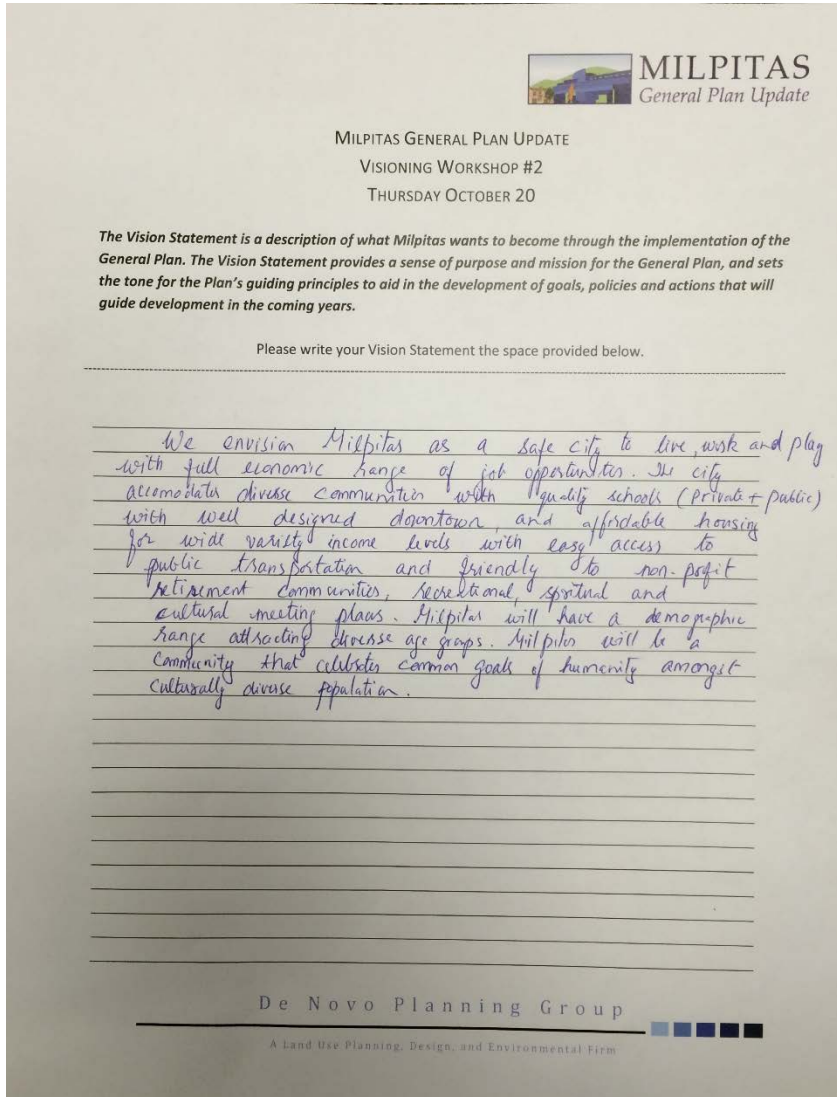 MILPITAS
General Plan Update
MILPITAS GENERAL PLAN UPDATE
VISIONING WORKSHOP #2
THURSDAY OCTOBER 20
The Vision Statement is a description of what Milpitas wants to become through the implementation of the
General Plan. The Vision Statement provides a sense of purpose and mission for the General Plan, and sets
the tone for the Plan's guiding principles to aid in the development of goals, policies and actions that will
guide development in the coming years.
Please write your Vision Statement the space provided below.
We envision Milpitas as a safe city to live, work and play
with full economic range of job opportunites. The city
accomodates diverse communities with quality schools (private + public)
with well designed downtown, and affordable housing
for wide variety income levels with easy access to
public transportation and friendly to non-profit
retirement communities, recreational, spritual and
cultural meeting places. Milpitas will have a demographic
range attracting diverse age groups. Milpitas will be a
Community that celebrates common goals of humanity amongst
culturally diverse population.
De Novo Planning Group
A Land Use Planning, Design, and Environmental Firm